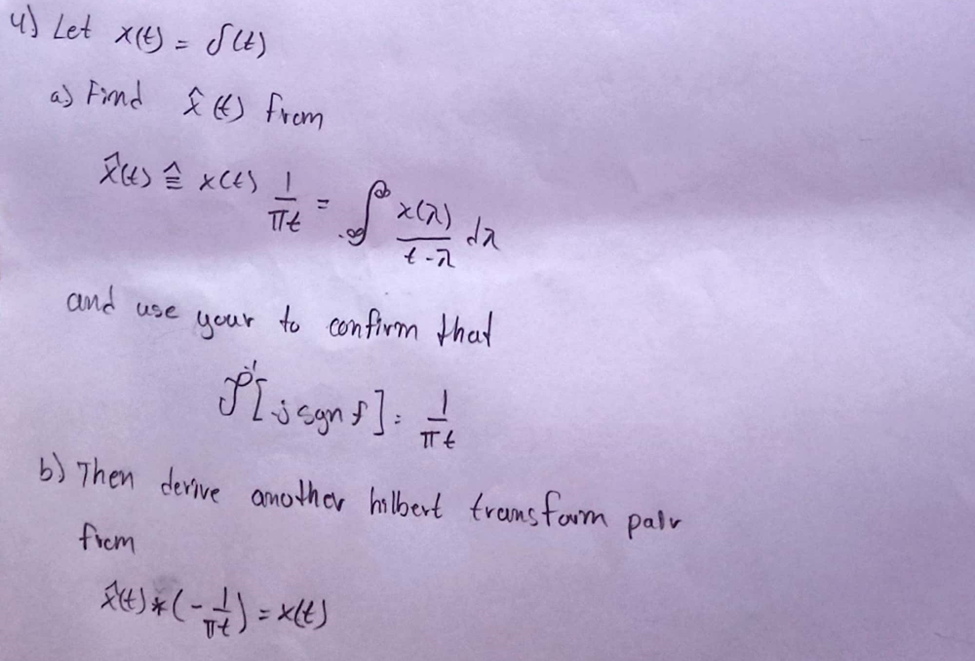 4) Let x(t) = δ(t)
a) Find x̂(t) from
x̂(t) ≙ x(t) 1/πt = ∫_{-∞}^{∞} x(λ)/(t-λ) dλ
and use your to confirm that
ℱ⁻¹[-j sgn f] = 1/πt
b) Then derive another hilbert transform pair
from
x̂(t) * (-1/πt) = x(t)